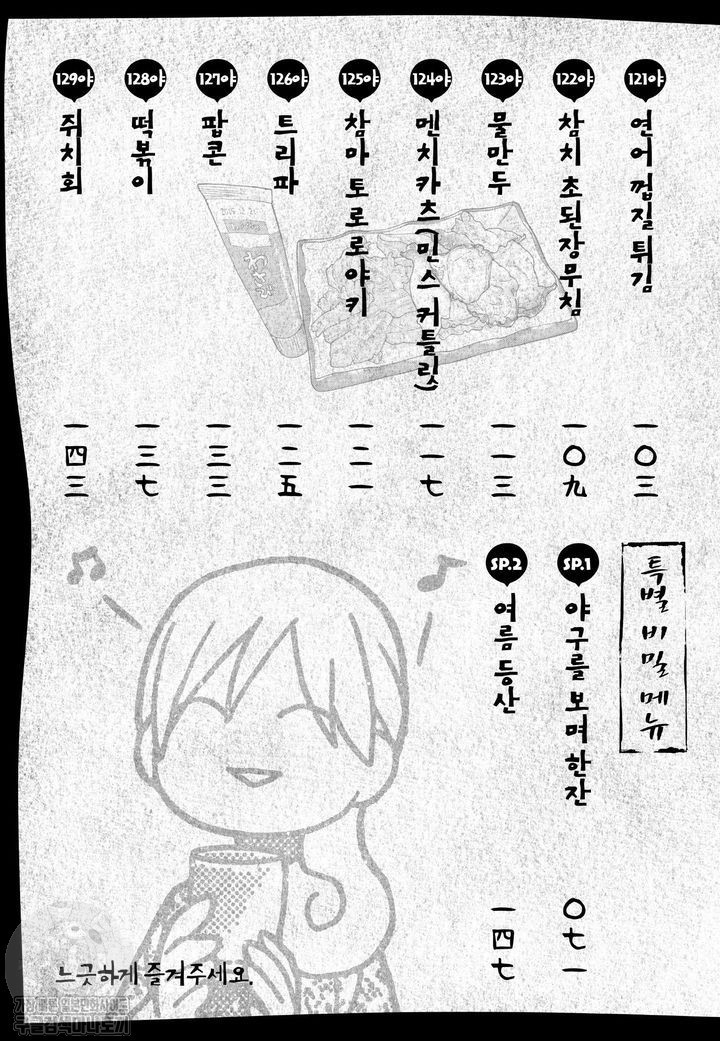 121야 연어 껍질 튀김 一〇三
122야 참치 초된장무침 一〇九
123야 물만두 一一三
124야 멘치카츠(민스 커틀릿) 一一七
125야 참마 토로로야키 一二一
126야 트리파 一二五
127야 팝콘 一三三
128야 떡볶이 一三七
129야 쥐치회 一四三
특별 비밀 메뉴
SP.1 야구를 보며 한잔 〇七一
SP.2 여름 등산 一四七
느긋하게 즐겨주세요.